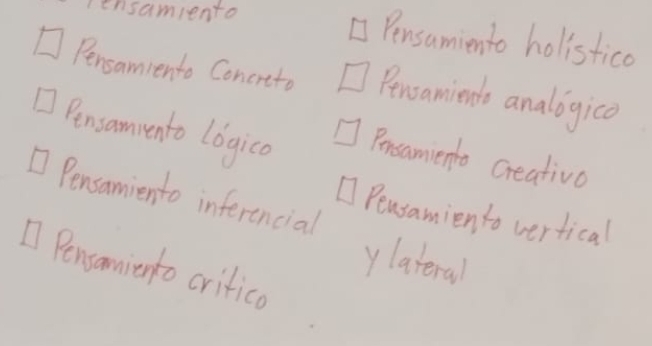 Pensamiento
□ Pensamiento Concreto
□ Pensamiento lógico
□ Pensamiento inferencial
□ Pensamiento crítico
□ Pensamiento holístico
□ Pensamiento analógico
□ Pensamiento Creativo
□ Pensamiento vertical
y lateral